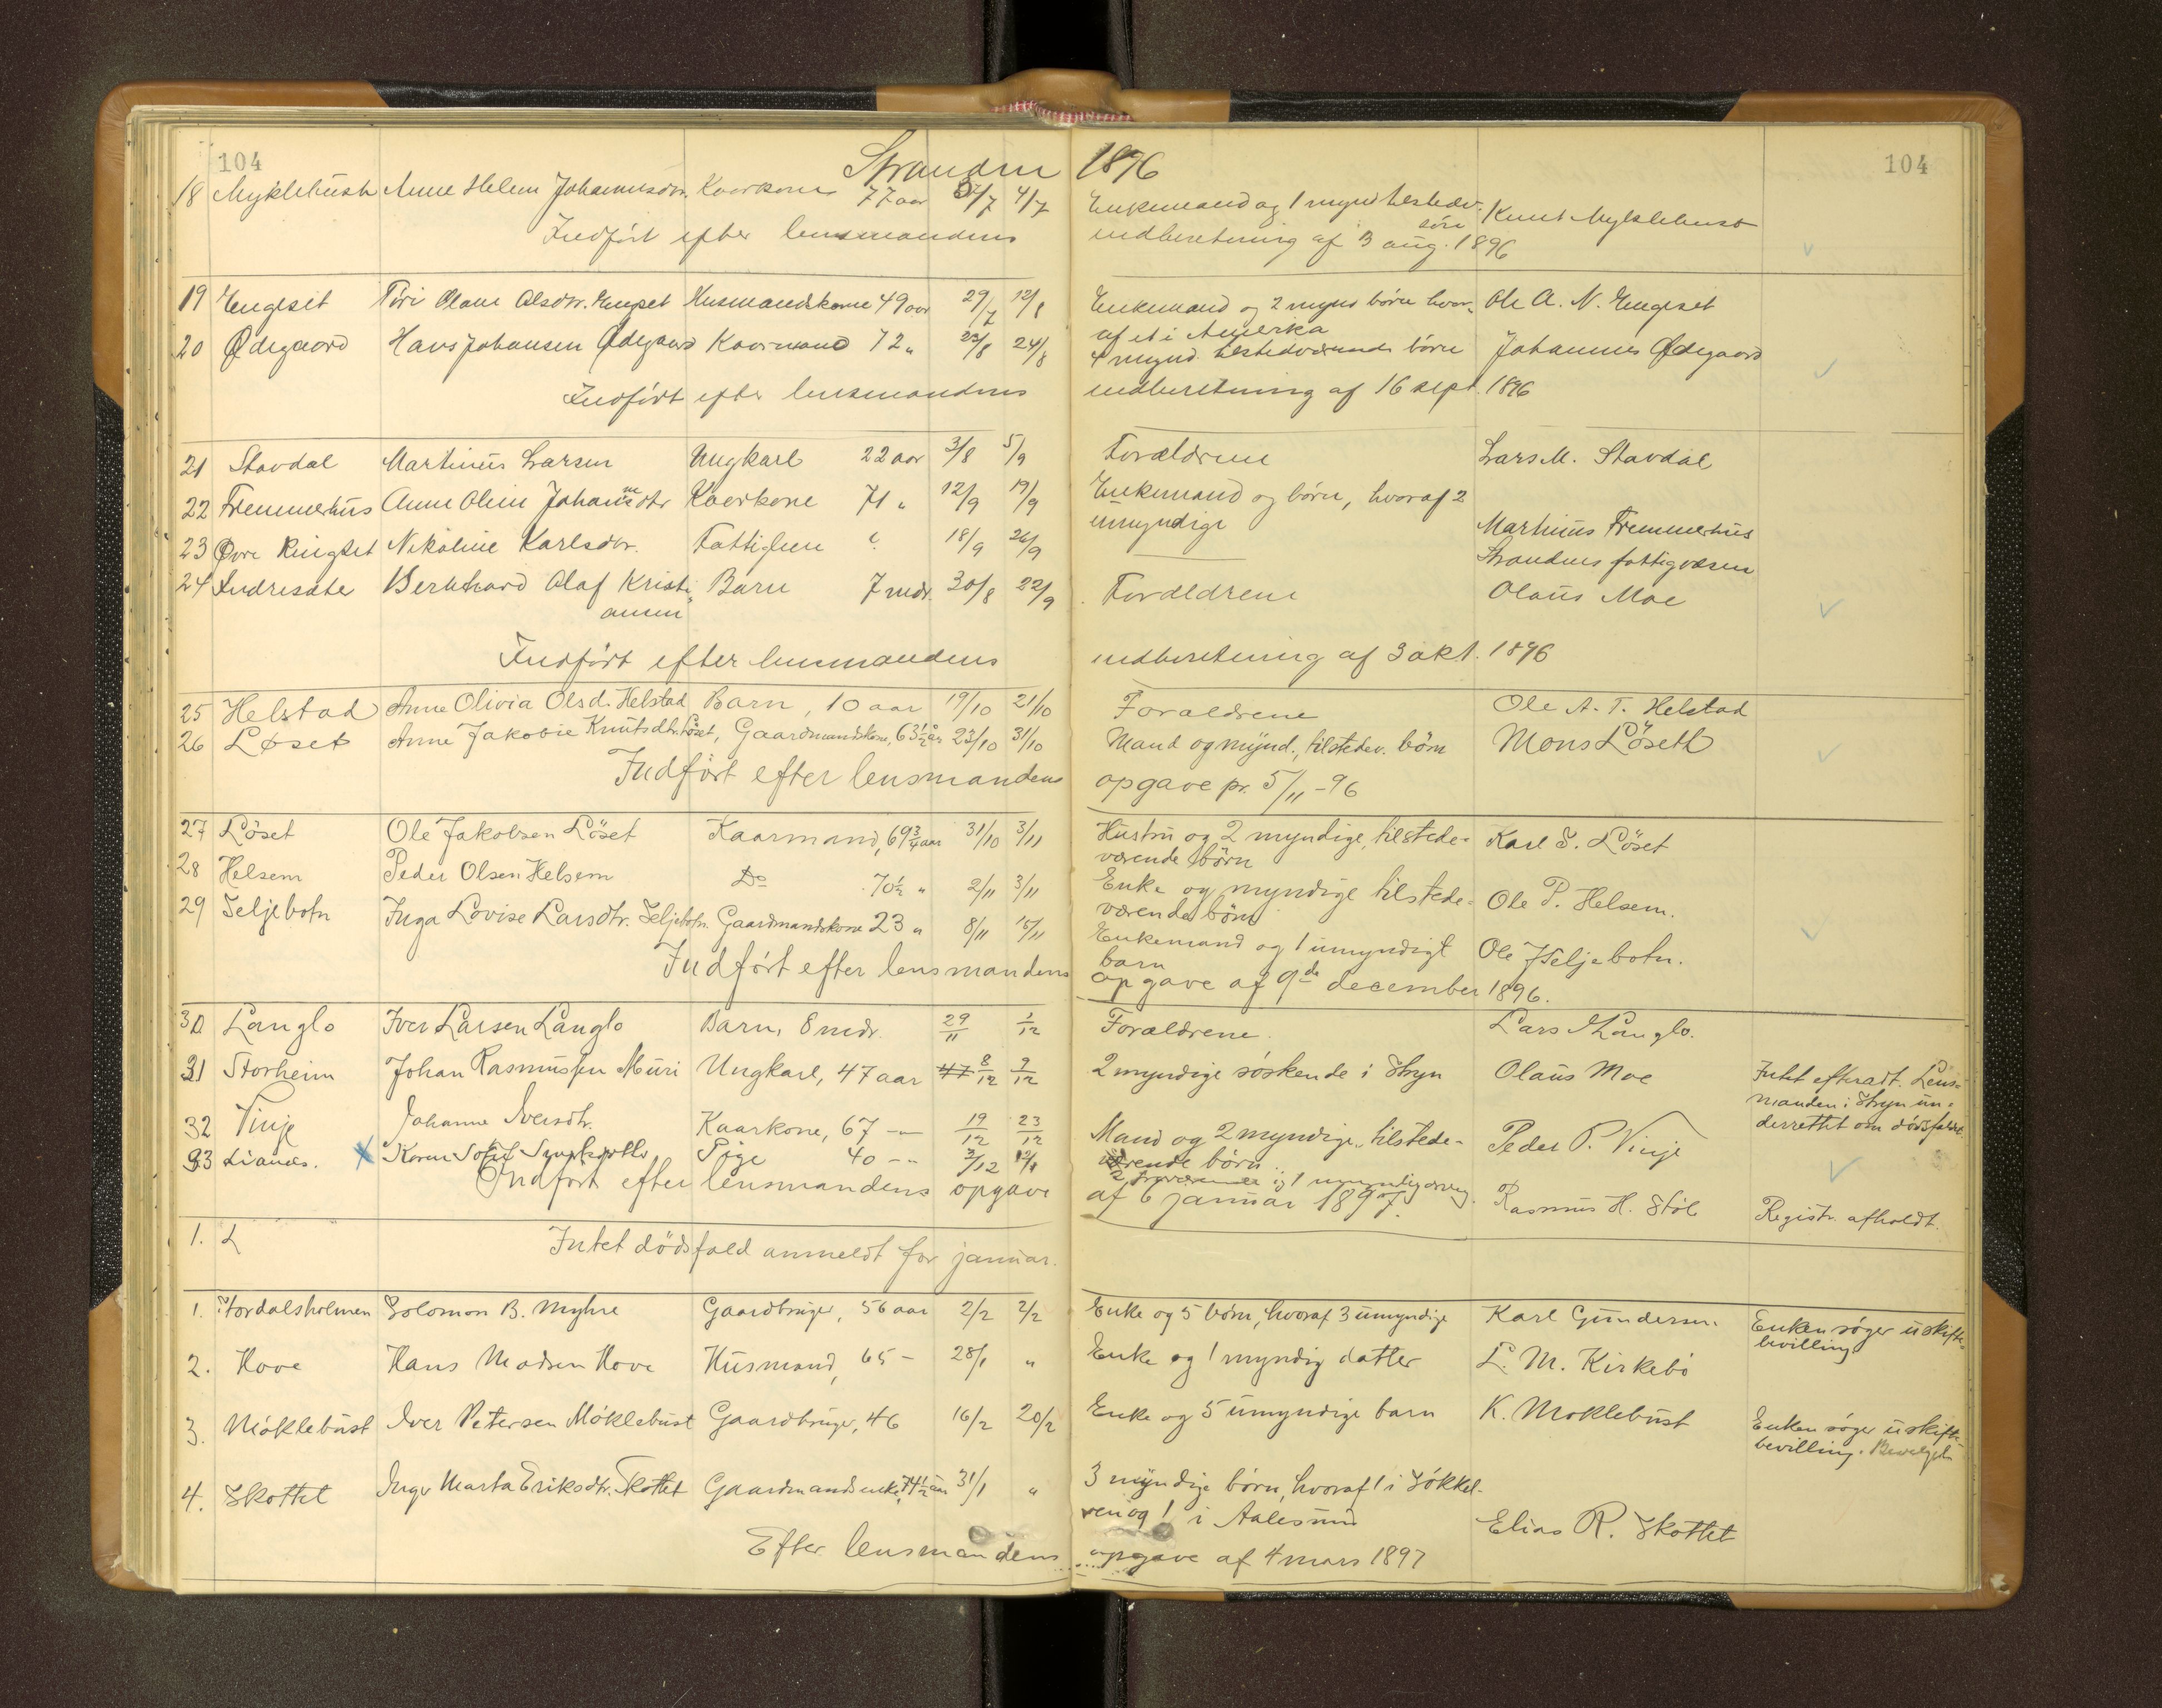 104 Stranden 1896 104
18 Myklebust Anne Helene Johannesdtr. Kaarkone 77 aar /7 4/7 Enkemand og 1 mynd tilstedev. Knut Myklebust
søn
Indført efter lensmandens indberetning af 3 aug. 1896
19 Engeset Olsdtr. Engset Husmandskone 49 aar 29/7 12/8 Enkemand og 2 mynd børn hvor- Ole A. N. Engeset
af et i Amerika
20 Ødegaard Hans Johansen Ødegaard Kaarmand 72 " 23/8 24/8 4 mynd tilstedeværende børn Johannes Ødegaard
Indført efter lensmandens indberetning af 16 sept. 1896
21 Stavdal Martinus Larsen Ungkarl 22 aar 3/8 5/9 Forældrene Lars M. Stavdal
22 Fremmerhus Anne Oline Johansdtr Kaarkone 71 " 12/9 19/9 Enkemand og børn, hvoraf 2
umyndige Martinus Fremmerhus
23 Øvre Ringset Nikoline Karlsdtr. Fattiglem 18/9 26/9 Strandens fattigvæsen
24 Indresæte Bernhard Olaf Kristi- Barn 7 mdr. 30/8 22/9 Forældrene Olaus Moe
ansen
Indført efter lensmandens indberetning af 3 okt. 1896
25 Helstad Anne Olivia Olsd. Helstad Barn, 10 aar 19/10 21/10 Forældrene Ole A. T. Helstad
26 Løset Anne Jakobie Knutsdtr. Løset, Gaardmandskone, 63 1/2 aar 23/10 31/10 Mand og mynd., tilstedev. børn Mons Løseth
Indført efter lensmandens opgave pr. 5/11 -96
27 Löset Ole Jakobsen Löset Kaarmand, 69 3/4 aar 31/10 3/11 Hustru og 2 myndige, tilstede- Karl S. Löset
værende børn
28 Helsem Peder Olsen Helsem Do 70 1/2 " 2/11 3/11 Enke og myndige tilstede- Ole P. Helsem.
værende børn
29 Seljebotn Inga Lovise Larsdtr. Seljebotn. Gaardmandskone 23 " 8/11 15/11 Enkemand og 1 umyndigt Ole Seljebotn.
barn
Indført efter lensmandens opgave af 9de december 1896.
30 Langlo Iver Larsen Langlo Barn, 8 mdr. 29/11 1/12 Forældrene. Lars Langlo.
31 Storheim Johan Rasmussen Muri Ungkarl, 47 aar 8/12 9/12 2 myndige søskende i Stryn Olaus Moe Intet efterladt. Lens-
manden i Stryn un-
derrettet om dødsfaldet.
32 Vinje Johanne Iversdtr. Kaarkone, 67 -"- 19/12 23/12 Mand og 2 myndige, tilstede- Peder P. Vinje
værende børn.
33 Lianæs. Karen Sofie Pige 40 -"- 3/12 12/ 2 og 1 umyndig Rasmus H. Støl Registr. afholdt.
Indført efter lensmandens opgave af 6 januar 1897.
1. L Intet dødsfald anmeldt for januar.
1. Stordalsholmen Solomon B. Myhre Gaardbruger, 56 aar 2/2 2/2 Enke og 5 børn, hvoraf 3 umyndige Karl Gundersen. Enken søger uskifte-
bevilling
2. Hove Hans Madsen Hove Husmand, 65 - 28/1 " Enke og 1 myndig datter L. M. Kirkebö
3. Möklebust Iver Petersen Möklebust Gaardbruger, 46 16/2 20/2 Enke og 5 umyndige barn K. Moklebust Enken søger uskifte-
bevilling. Bevilget
4. Skottet Inger Marta Eriksdtr. Skottet Gaardmandsenke, 74 1/2 aar 31/1 " 3 myndige børn, hvoraf 1 i Søkkel-
ven og 1 i Aalesund Elias R. Skottet
Efter lensmandens opgave af 4 mars 1897